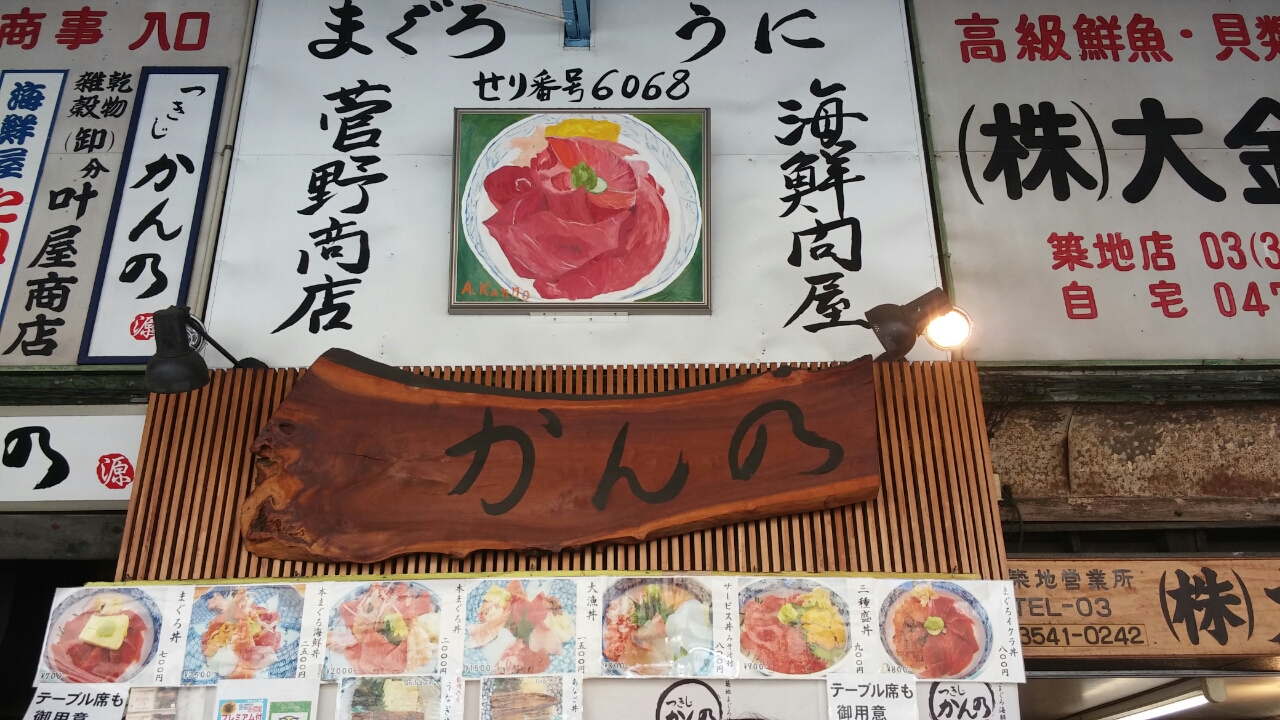 商事 入口
海鮮屋
乾物
雑穀
(卸)
分
叶屋商店
つきじ
かんの
源
まぐろ
うに
せり番号6068
菅野商店
海鮮問屋
A.Kanno
高級鮮魚・貝類
(株)大金
築地店 03(3
自 宅 047
の
源
かんの
築地営業所
TEL-03
3541-0242
(株)
まぐろ丼
七〇〇円
¥700
本まぐろ海鮮丼
二五〇〇円
¥2500
本まぐろ丼
二〇〇〇円
¥2000
大漁丼
一五〇〇円
¥1500
サービス丼 みそ汁付
八〇〇円
¥800
三種盛丼
九〇〇円
¥900
まぐろイクラ丼
八〇〇円
¥800
テーブル席も
御用意
プレミアム付
つきじ
かんの
テーブル席も
御用意
つきじ
かんの